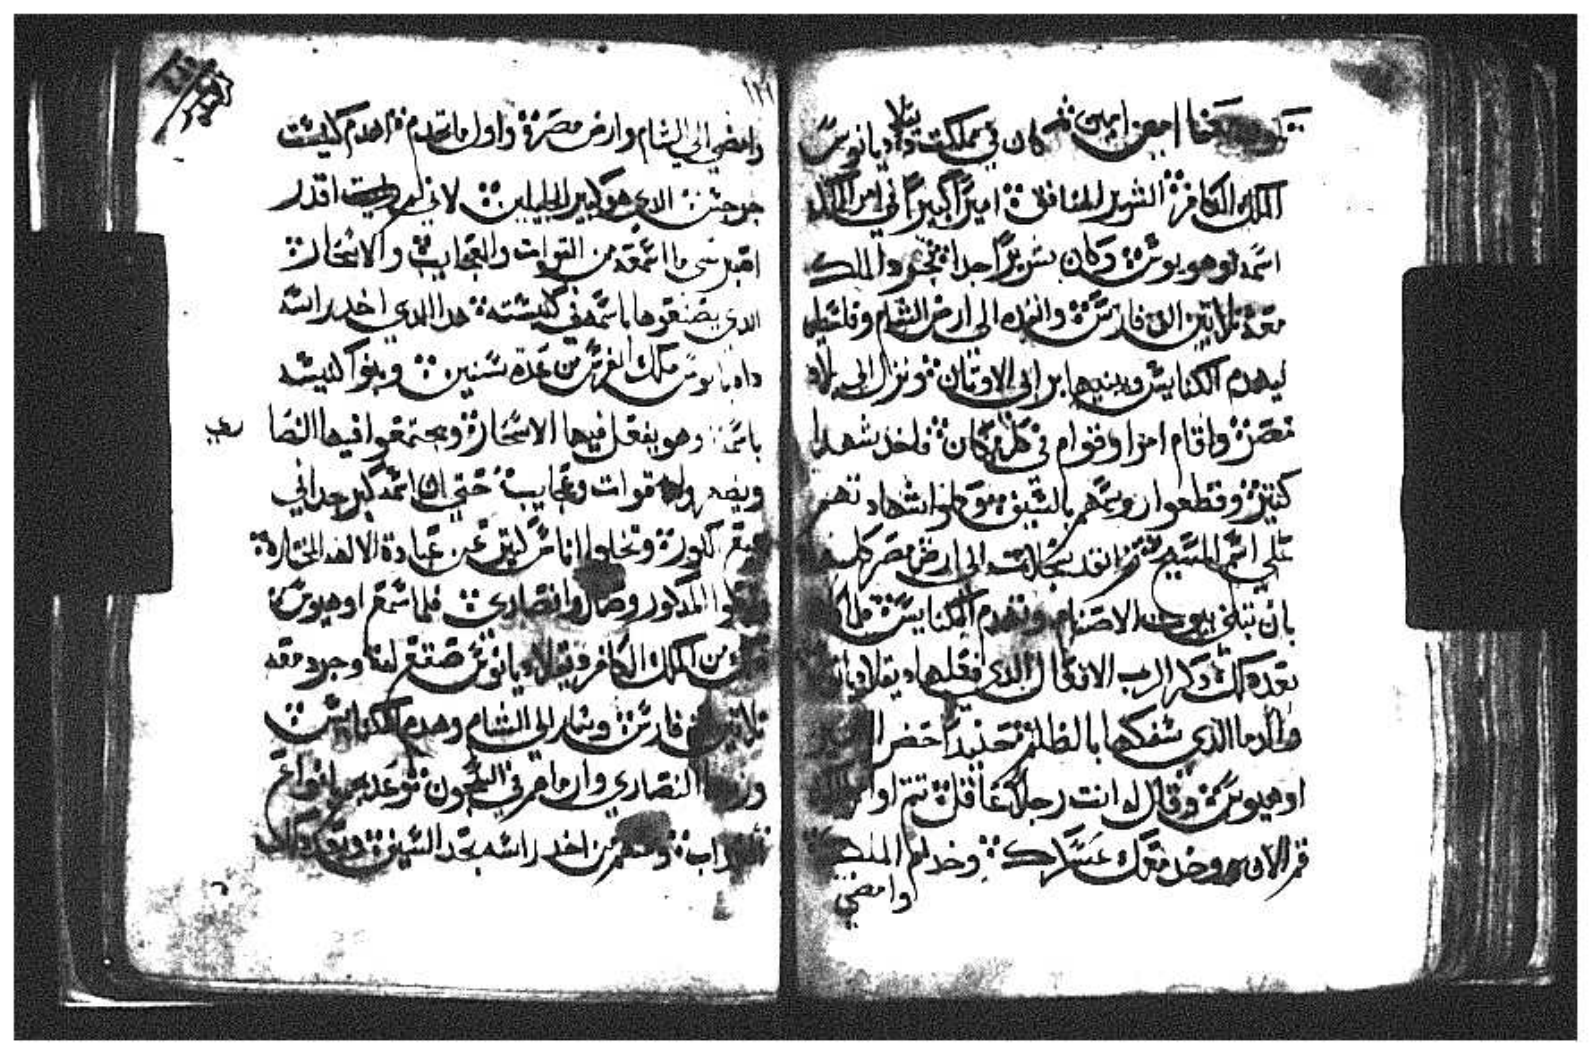 اجمعين امين كان في مملكت دقلاديانوس
الملك الكافر الشرير المنافق اميرًا كبيرًا في امر الملك
اسمه اوهيوس وكان شريرًا جدا فجرد الملك
معه تلاتين الف فارس وانفده الى ارض الشام وفلسطين
ليهدم الكنايس ويبنيها برابي الاوتان ونزل الى بلاد
مصر واقام امرا وقوام في كل مكان فاخد شهدا
كتير وقطعوا روسهم بالسيف وكملوا شهادتهم
على اسم المسيح تم انفد سجلات الى ارض مصر كلها
بان تبنى بيوت الاصنام وتهدم الكنايس
بعد دلك دكر الرب الافعال الذي فعلها دقلاديانوس
والدما الذي سفكها بالظلم حنيد احضر
اوهيوس وقال له انت رجلا عاقل تمم اوامر
قم الان وخد معك عسكرك وخد لم الملك
وامضي
١٢١
وامضي الى الشام وارض مصر واول ما تهدم اهدم كنيست
جرجس الدي هو كبير الجليلين لاني لم اقدر
اصبر شي ما اسمعه من القوات والعجايب والاسحار
الدي يصنعوها باسمه في كنيسته هدا الدي اخد راسه
داديانوس ملك الفرس من عدة سنين وبنوا كنيسه
باسمه وهو يفعل فيها الاسحار ويجتمعوا فيها النصا
رى
ويضهروا قوات وعجايب حتى ان اسمه كبر جدا في
وتخلوا اناس كتير عن عبادة الالهه المختاره
المدكور وصاروا نصارى فلما سمع اوهيوس
من الملك الكافر دقلاديانوس صنع وجرد معه
تلاتين الف فارس وسار الى الشام وهدم الكنايس
النصارى وارماهم في السجون توعدهم بانواع
العداب ومنهم من اخد راسه بحد السيف وبعد دلك